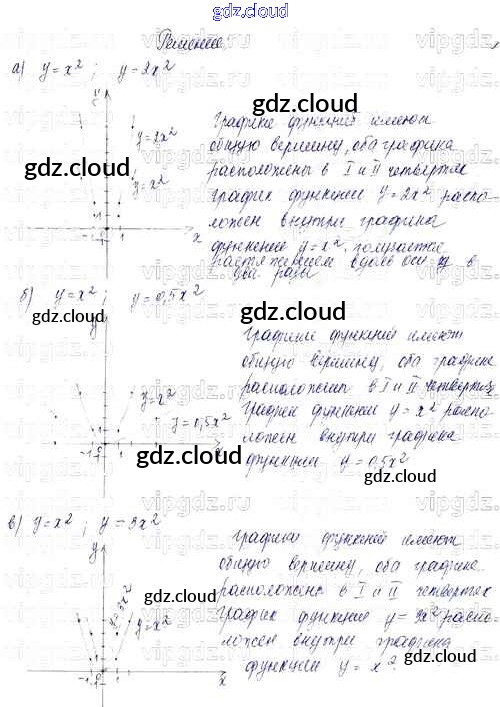 gdz.cloud
Решение
а) y=x²; y=2x²
gdz.cloud
Графики функций имеют
общую вершину, оба графика
расположены в I и II четвертях
график функции y=2x² распо-
ложен внутри графика
функции y=x², получается
растяжением вдоль оси y в
два раза
y=2x²
gdz.cloud
y=x²
x
б) y=x²; y=0,5x²
gdz.cloud
gdz.cloud
y
Графики функций имеют
общую вершину, оба графика
расположены в I и II четвертях
График функции y=x² распо-
ложен внутри графика
функции y=0,5x²
y=x²
y=0,5x²
gdz.cloud
gdz.cloud
x
в) y=x²; y=3x²
y
Графики функций имеют
общую вершину, оба графика
расположены в I и II четвертях
График функции y=3x² распо-
ложен внутри графика
функции y=x².
y=3x²
y=x²
gdz.cloud
gdz.cloud
x